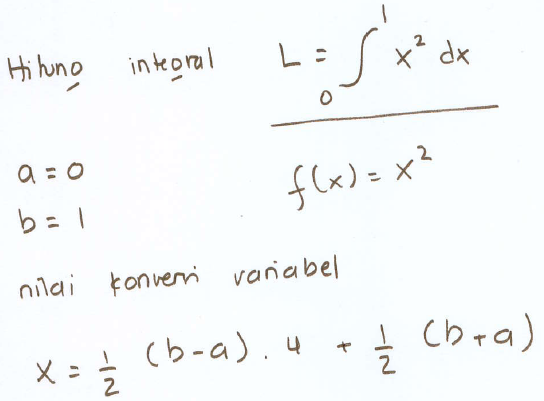 Hitung integral L = ∫₀¹ x² dx
a = 0
f(x) = x²
b = 1
nilai konversi variabel
x = 1/2 (b-a) . u + 1/2 (b+a)